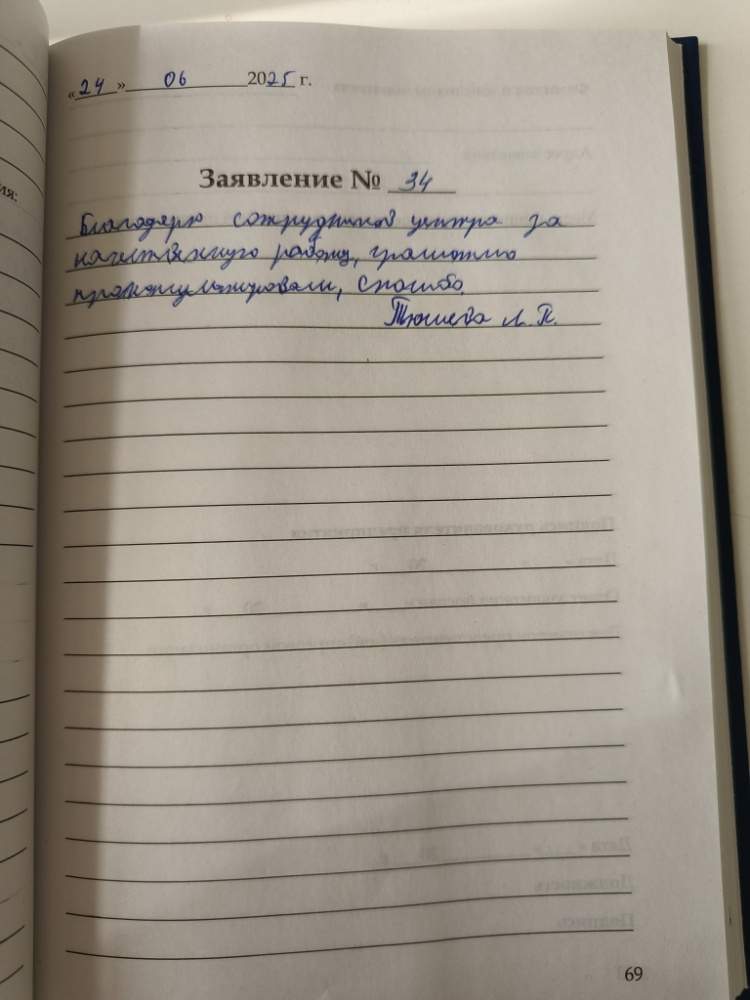 «24» 06 2025 г.
Заявление № 34
Благодарю сотрудников центра за
качественную работу, грамотно
проконсультировали, спасибо.
Тюшева Л. П.
69